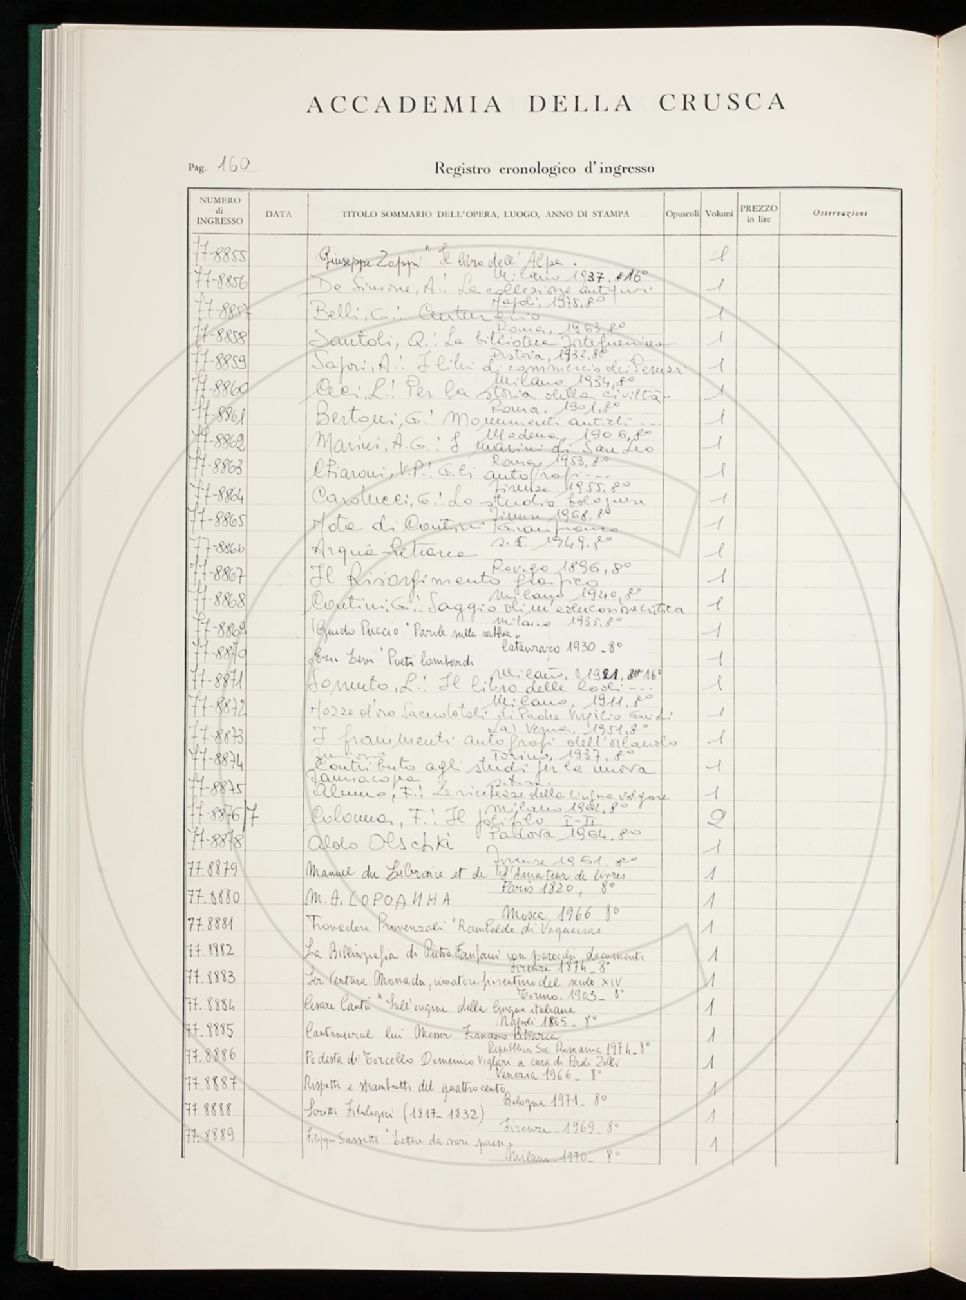 ACCADEMIA DELLA CRUSCA
Pag. 160
Registro cronologico d'ingresso
NUMERO di INGRESSO DATA TITOLO SOMMARIO DELL'OPERA, LUOGO, ANNO DI STAMPA Opuscoli Volumi PREZZO in lire Osservazioni
77-8855 Giuseppe Zoppi "Il libro dell'Alpe. 1
Milano 1937. 16°
77-8856 De Simone, A.: La collezione 1
Napoli, 1975. 8°
77-8857 Belli, G.: Centenario 1
Roma, 1963. 8°
77-8858 Santoli, Q.: La biblioteca Forteguerriana 1
Pistoia, 1932. 8°
77-8859 Sapori, A.: I libri di commercio dei Peruzzi 1
Milano 1934, 8°
77-8860 Ceci, L.: Per la storia della civiltà 1
Roma. 1901. 8°
77-8861 Bertoni, G.: Monumenti antichi ... 1
Modena, 1906, 8°
77-8862 Marini, A.G.: I marini di San Leo 1
Roma, 1953, 8°
77-8863 Chiaroni, V.P.: Gli autografi ... 1
Firenze 1955. 8°
77-8864 Carducci, G.: Lo studio bologn 1
Firenze 1968. 8°
77-8865 Nota di Contini Gianfranco 1
s.l. 1949. 8°
77-8866 Arquà Petrarca 1
Rovigo 1896, 8°
77-8867 Il Risorgimento grafico 1
Milano 1940, 8°
77-8868 Contini, G.: Saggio di un 1
Milano 1935. 8°
77-8869 Guido Puccio "Parole sulla sabbia" 1
Catanzaro 1930 - 8°
77-8870 Levi "Poeti lombardi 1
Milano, 1921, 16°
77-8871 Sorrento, L.: Il libro delle lodi ... 1
Milano, 1911. 8°
77-8872 Nozze d'oro Sacerdotali di Padre Virgilio 1
La Verna, 1951. 8°
77-8873 I frammenti autografi dell'Orlando 1
Torino, 1937. 8°
77-8874 Contributo agli studi per la nuova 1
77-8875 Alunno, F.: Le ricchezze della lingua volgare 1
Milano 1962. 8°
77-8876/7 Colonna, F.: Il polifilo I-II 2
Padova 1964. 8°
77-8878 Aldo Olschki 1
Firenze 1961. 8°
77.8879 Manuel du Libraire et de l'Amateur de livres 1
Paris 1820, 8°
77.8880 M. A. 1
Mosca 1966 8°
77.8881 Trovadori Provenzali "Rambaldo di Vaqueiras 1
77.8882 La Bibliografia di Pietro Fanfani con parecchi documenti 1
Firenze 1874 - 8°
77.8883 Ser Ventura Monachi, rimatore fiorentino del secolo XIV 1
Torino 1903 - 8°
77.8884 Cesare Cantù "Sull'origine della lingua italiana 1
Napoli 1865 - 8°
77.8885 Canzoniere lui Messer Francesco Petrarca 1
Republica Soc. Romania 1974 - 8°
77.8886 Podestà di Torcello Domenico Viglari a cura di Paolo Zolli 1
Venezia 1966 - 8°
77.8887 Rispetti e strambotti del quattrocento 1
Bologna 1971 - 8°
77.8888 Scritti Filologici (1817-1832) 1
Firenze 1969 - 8°
77.8889 Filippo Sassetti "Lettere da vari paesi" 1
Milano 1970 - 8°